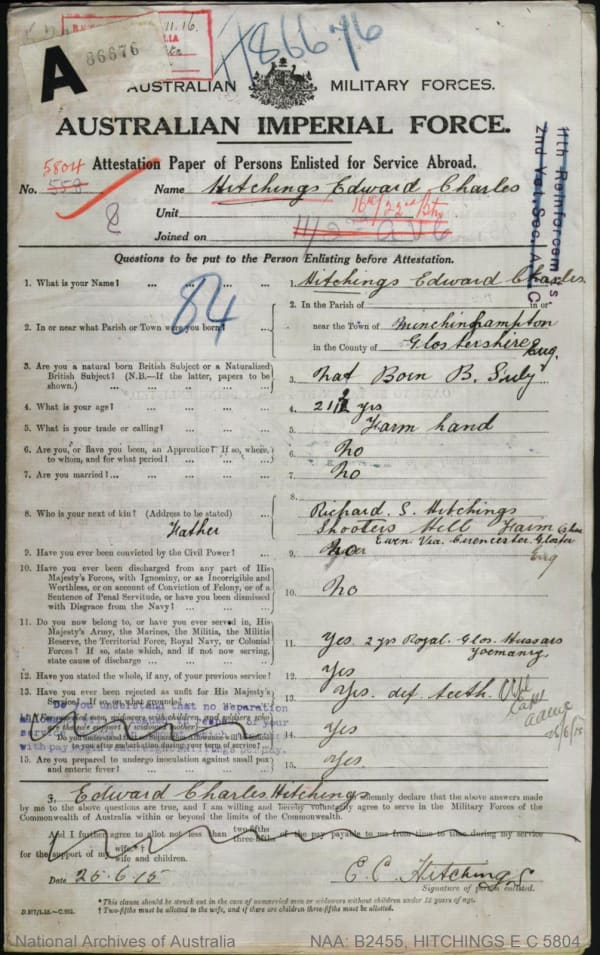 11.16.
86676
A
86676
AUSTRALIAN MILITARY FORCES.
AUSTRALIAN IMPERIAL FORCE.
5804 Attestation Paper of Persons Enlisted for Service Abroad.
No. 558 Name Hitchings Edward Charles
8 Unit 16th/22nd Btn
Joined on
11th Reinforcements
2nd
Questions to be put to the Person Enlisting before Attestation.
84
1. What is your Name? ... ... ... 1. Hitchings Edward Charles.
2. In or near what Parish or Town were you born? ... 2. In the Parish of in or
near the Town of Minchinhampton
in the County of Glostershire Eng.
3. Are you a natural born British Subject or a Naturalized
British Subject? (N.B.—If the latter, papers to be
shown.) ... ... ... ... 3. Nat Born B. Subj
4. What is your age? ... ... ... 4. 21 yrs
5. What is your trade or calling? ... ... 5. Farm hand
6. Are you, or have you been, an Apprentice? If so, where,
to whom, and for what period? ... ... 6. No
7. Are you married? ... ... ... 7. No
8. Who is your next of kin? (Address to be stated) 8. Richard. S. Hitchings
Father Shooters Hill Farm
Ewen. Via. Cirencester. Gloster
Eng
9. Have you ever been convicted by the Civil Power? ... 9. No
10. Have you ever been discharged from any part of His
Majesty's Forces, with Ignominy, or as Incorrigible and
Worthless, or on account of Conviction of Felony, or of a
Sentence of Penal Servitude, or have you been dismissed
with Disgrace from the Navy? ... ... 10. No
11. Do you now belong to, or have you ever served in, His
Majesty's Army, the Marines, the Militia, the Militia
Reserve, the Territorial Force, Royal Navy, or Colonial
Forces? If so, state which, and if not now serving,
state cause of discharge ... ... 11. Yes. 2 yrs Royal. Glos. Hussars
Yoemanry.
12. Have you stated the whole, if any, of your previous service? 12. Yes
13. Have you ever been rejected as unfit for His Majesty's
Service? If so, on what grounds? 13. Yes. def. teeth.
26/6/15
Do you understand that no separation
14. Yes
to you after embarkation during your term of service?
15. Are you prepared to undergo inoculation against small pox
and enteric fever? ... ... ... 15. Yes.
I, Edward Charles Hitchings solemnly declare that the above answers made
by me to the above questions are true, and I am willing and hereby voluntarily agree to serve in the Military Forces of the
Commonwealth of Australia within or beyond the limits of the Commonwealth.
And I further agree to allot not less than two-fifths three-fifths of the pay payable to me from time to time during my service
for the support of my wife.†
wife and children.
Date 25.6.15 E. C. Hitchings
Signature of person enlisted.
*This clause should be struck out in the case of unmarried men or widowers without children under 18 years of age.
† Two-fifths must be allotted to the wife, and if there are children three-fifths must be allotted.
National Archives of Australia NAA: B2455, HITCHINGS E C 5804